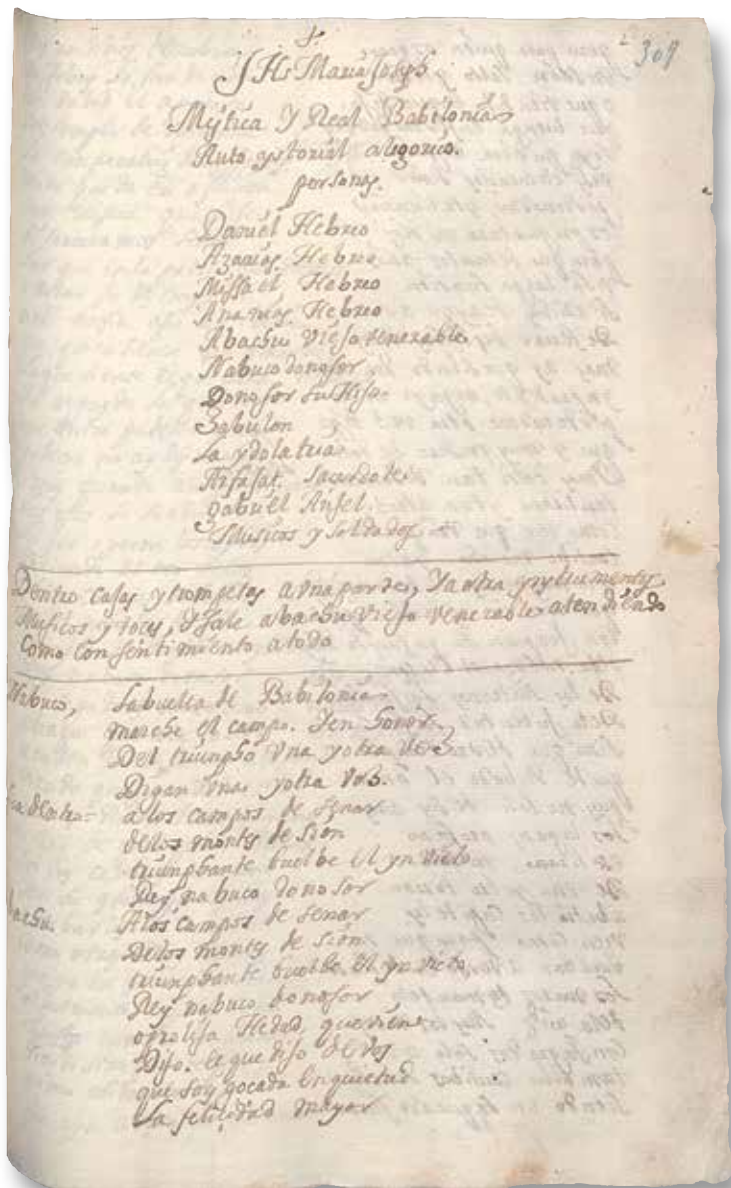 309
JHs Maria Joseph
Mystica Y Real Babilonia
Auto ystorial alegorico.
personas.
Daniel Hebreo
Azarias Hebreo
Missael Hebreo
Ananias Hebreo
Abachu viejo venerable
Nabucodonosor
Donosor su Hijo
Zabulon
La ydolatria
Arfasat. Sacerdote
gabriel Anjel.
Musicos y soldados
Dentro cajas y trompetas a vna parte, Y a otra ynstrumentos
Musicos y voces, Y sale abachu viejo venerable atendiendo
Como con sentimiento a todo
Nabuco, La buelta de Babilonia
marche el campo. Y en honor
Del triunpho vna y otra vez
Digan vna y otra vos.
a los campos de senar
de los montes de sion
triunphante buelbe el ynvicto
Rey nabuco donosor
A los campos de senar
De los montes de sion
triunphante buelbe el ynvicto
Rey nabuco donosor
o prolija Hedad, que vien
Dijo. el que dijo de vos
que soy gocada en quietud
La felicidad mayor